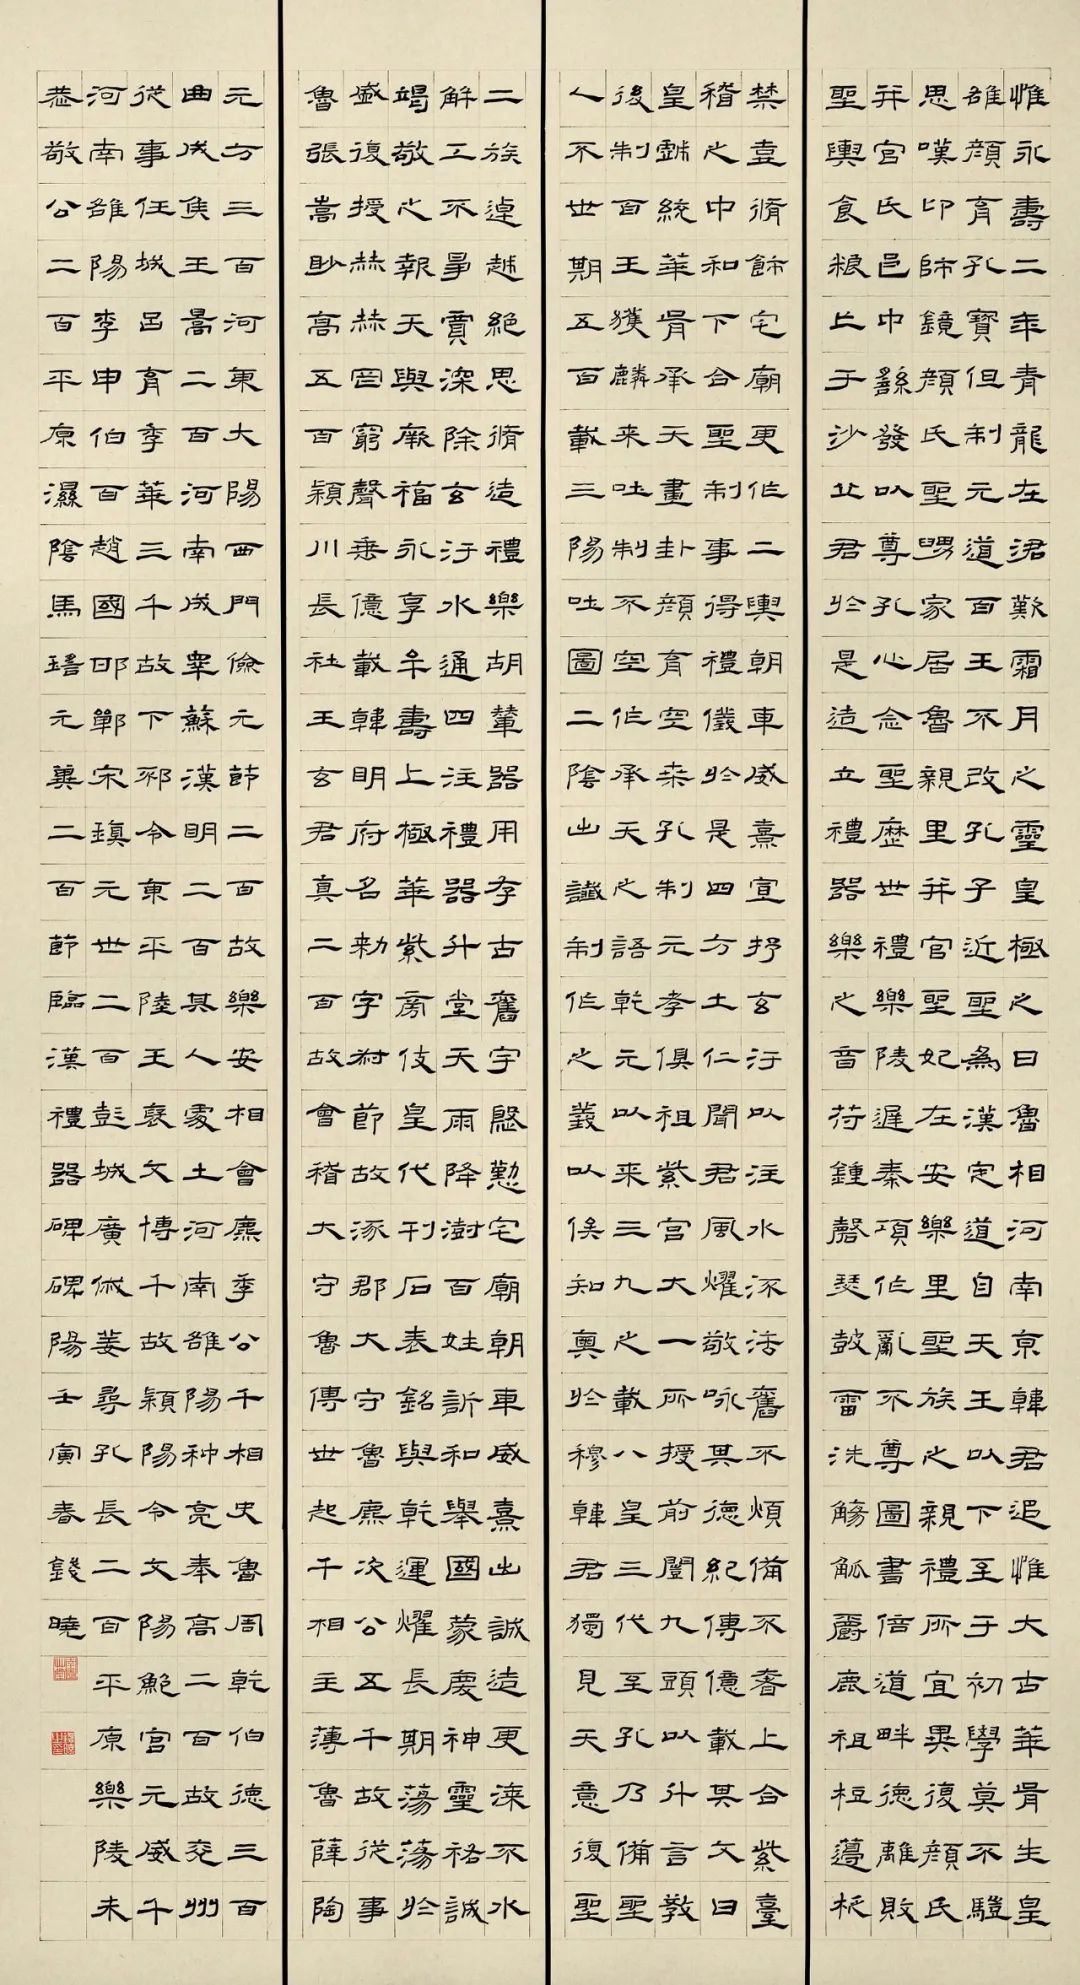 惟永壽二年青龍在涒歎霜月之靈皇極之日魯相河南京韓君追惟大古華胥生皇
雄顏育孔寶但制元道百王不改孔子近聖為漢定道自天王以下至于初學莫不驥
思嘆卬師鏡顏氏聖舅家居魯親里并官聖妃在安樂里聖族之親禮所宜異復顏氏
并官氏邑中繇發以尊孔心念聖歷世禮樂陵遲秦項作亂不尊圖書倍道畔德離敗
聖輿食粮亡于沙丘君於是造立禮器樂之音苻鍾磬瑟鼓雷洗觴觚爵鹿柤梪籩柉
禁壺脩飾宅廟更作二輿朝車威熹宣抒玄汙以注水流法舊不煩備不奢上合紫臺
稽之中和下合聖制事得禮儀於是四方土仁聞君風燿敬咏其德紀傳億載其文曰
皇戲統華胥承天畫卦顏育空桑孔制元孝俱祖紫宮大一所授前闓九頭以升言教
後制百王獲麟來吐制不空作承天之語乾元以來三九之載八皇三代至孔乃備聖
人不世期五百載三陽吐圖二陰出讖制作之義以俟知奧於穆韓君獨見天意復聖
二族逴越絕思脩造禮樂胡輦器用存古舊宇慇懃宅廟朝車威熹出誠造更漆不水
解工不爭賈深除玄汙水通四注禮器升堂天雨降澍百姓訢和舉國蒙慶神靈祐誠
竭敬之報天與厥福永享牟壽上極華紫旁伎皇代刊石表銘與乾運燿長期蕩蕩於
盛復授赫赫罔窮聲垂億載韓明府名勑字叔節故涿郡大守魯麃次公五千故從事
魯張嵩眇高五百潁川長社王玄君真二百故會稽大守魯傅世起千相主薄魯薛陶
元方三百河東大陽西門儉元節二百故樂安相魯麃季公千相史魯周乾伯德三百
曲成侯王暠二百河南成睪蘇漢明二百其人處土河南雒陽种亮奉高二百故兗州
從事任城呂育季華三千故下邳令東平陸王褒文博千故潁陽令文陽鮑宮元威千
河南雒陽李申伯百趙國邯鄲宋瑱元世二百彭城廣俶姜尋孔長二百平原樂陵朱
恭敬公二百平原濕陰馬瑤元冀二百節臨漢禮器碑碑陽壬寅春錢曉